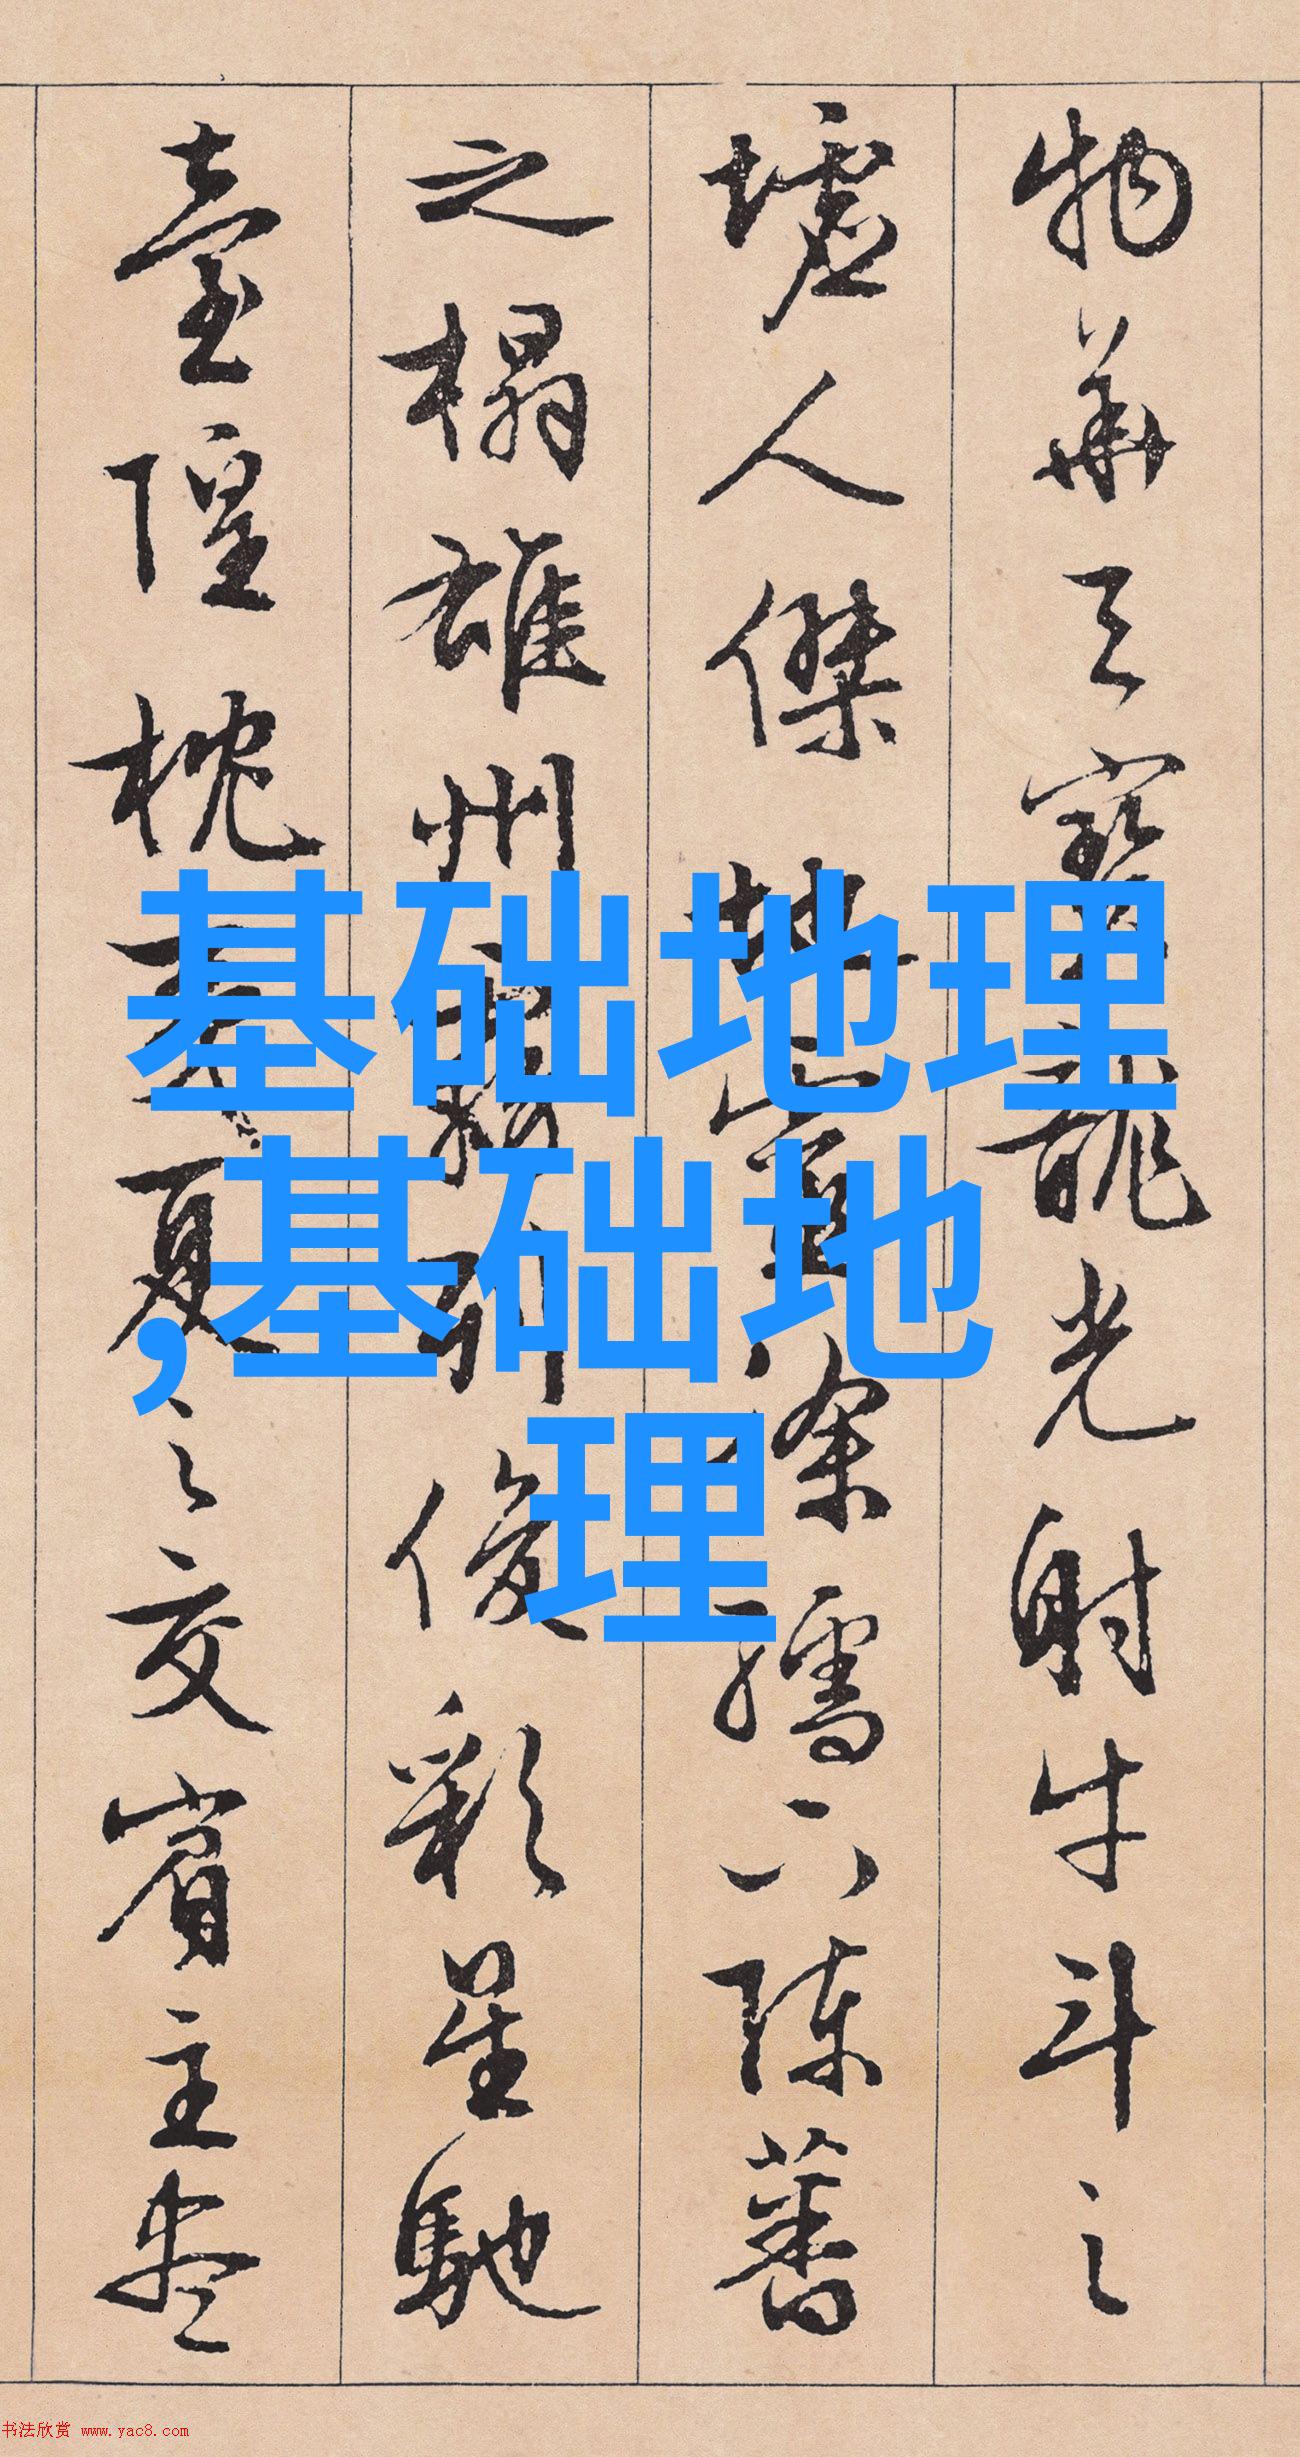 物華天寳龍光射牛斗之
墟人傑地靈徐孺下陳蕃
之榻雄州霧列俊彩星馳
臺隍枕夷夏之交賓主盡
基础地理
,基础地
理
书法欣赏 www.yac8.com